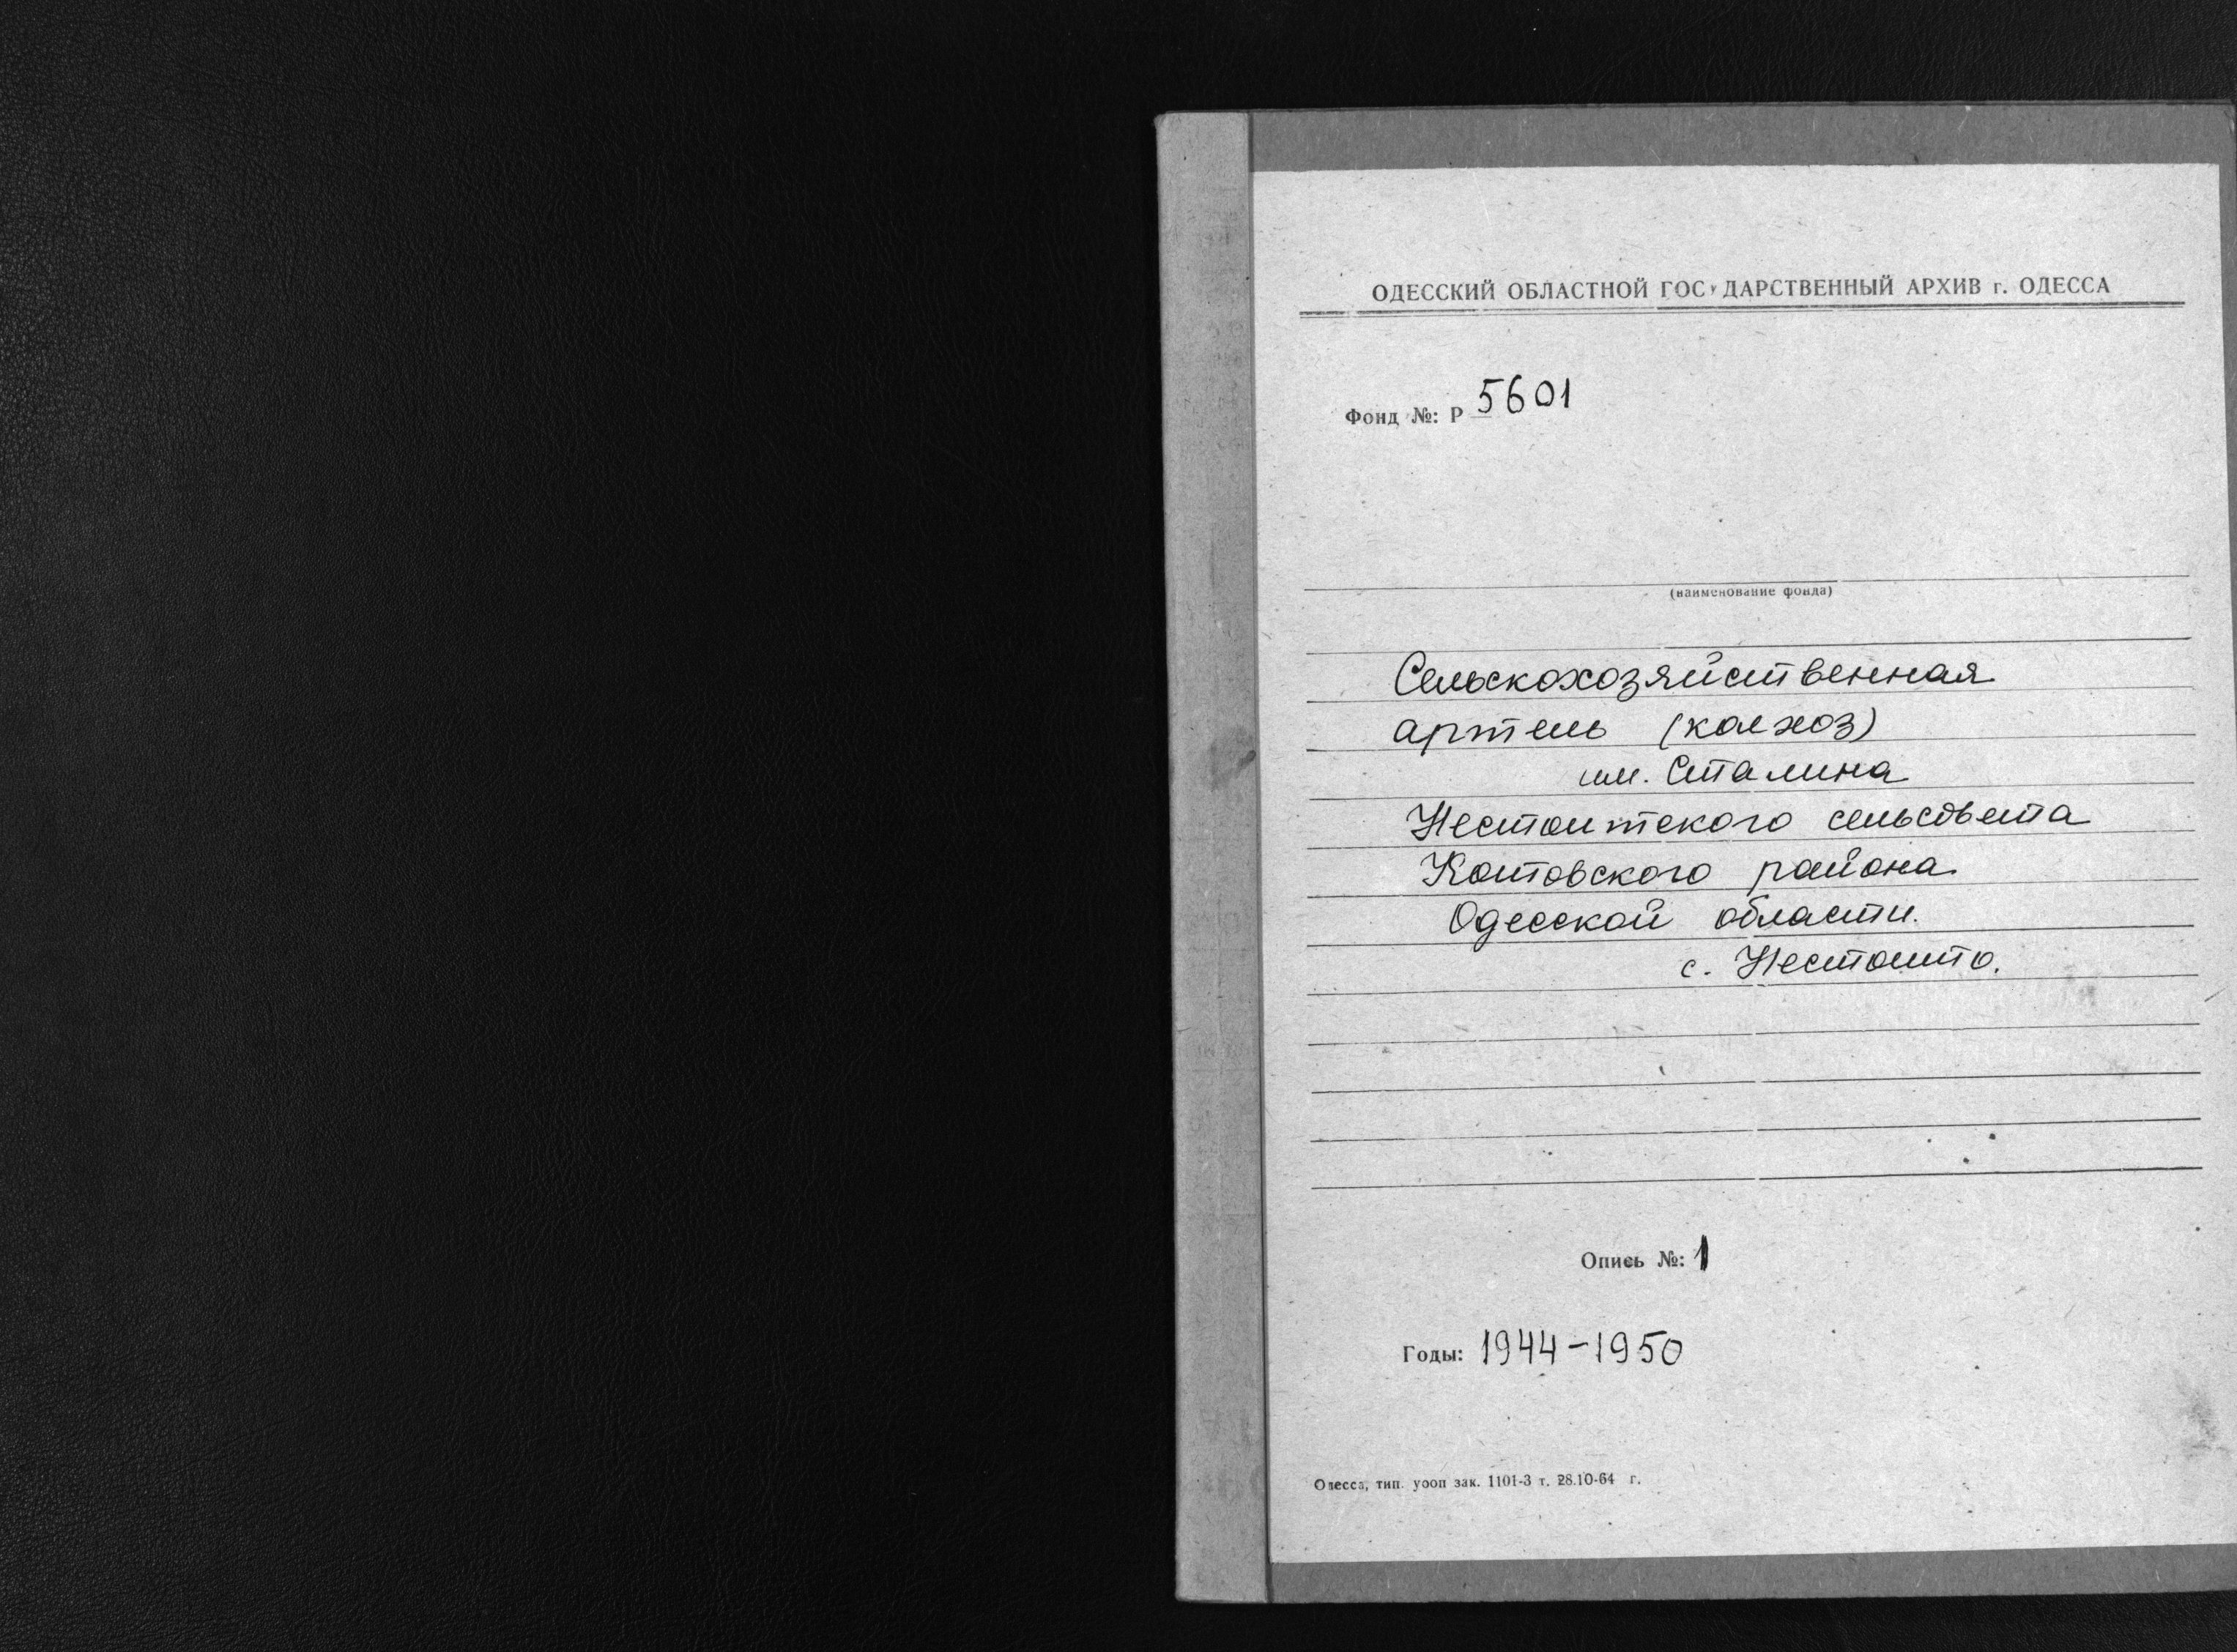 ОДЕССКИЙ ОБЛАСТНОЙ ГОСУДАРСТВЕННЫЙ АРХИВ г. ОДЕССА
Фонд №: Р 5601
(наименование фонда)
Сельскохозяйственная
артель (колхоз)
им. Сталина
Нестоитского сельсовета
Котовского района
Одесской области.
с. Нестоито.
Опись №: 1
Годы: 1944-1950
Одесса, тип. уооп зак. 1101-3 т. 28.10-64 г.